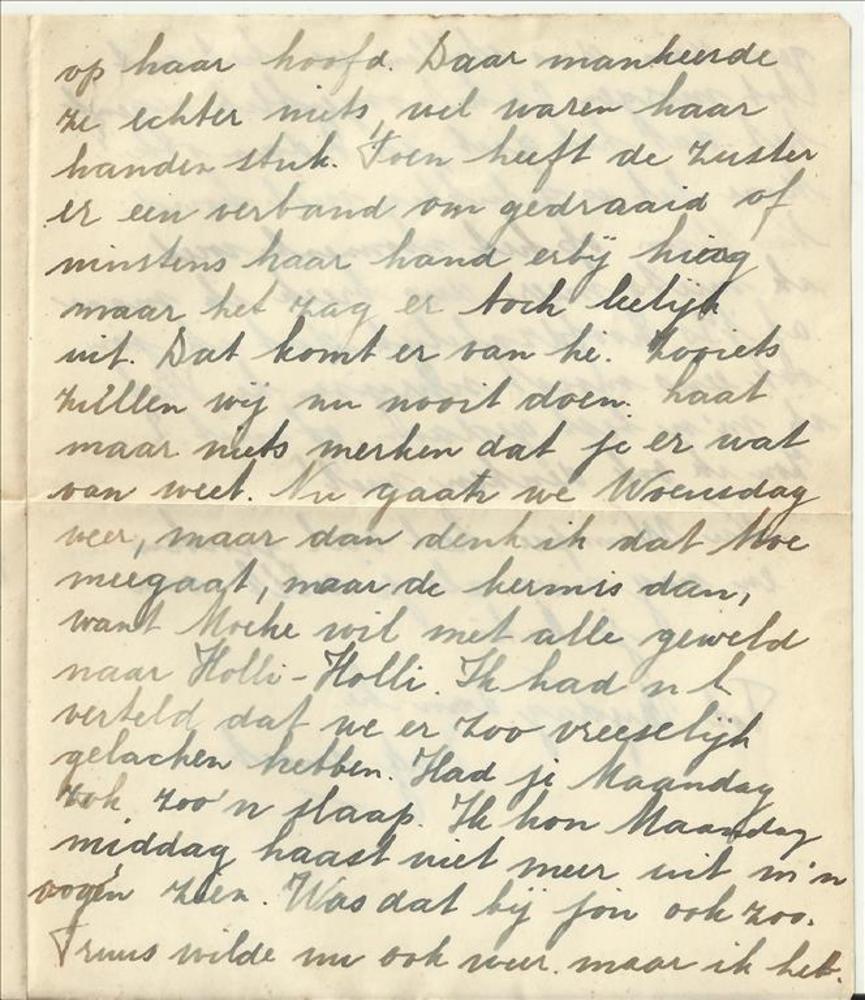 op haar hoofd. Daar mankeerde
ze echter niets, wel waren haar
handen stuk. Toen heeft de zuster
er een verband om gedraaid of
minstens haar hand erbij hing
maar het zag er toch lelijk
uit. Dat komt er van hè. Zooiets
zullen wij nu nooit doen. Laat
maar niets merken dat je er wat
van weet. Nu gaan we Woensdag
weer, maar dan denk ik dat Moe
meegaat, maar de kermis dan,
want Moeke wil met alle geweld
naar Holli-Holli. Ik had n.l.
verteld dat we er zoo vreeselijk
gelachen hebben. Had je Maandag
ook zoo'n slaap. Ik kon Maandag
middag haast niet meer uit m'n
oogen zien. Was dat bij jou ook zoo.
Truus wilde nu ook weer. maar ik heb.